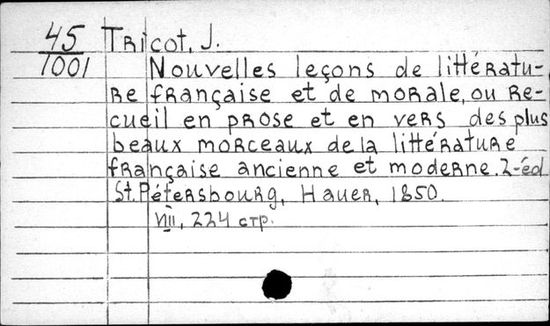 45 Tricot, J.
1001 Nouvelles leçons de littératu-
re française et de morale, ou re-
cueil en prose et en vers des plus
beaux morceaux de la littérature
française ancienne et moderne. 2-éd
St. Pétersbourg, Hauer, 1850.
VIII, 224 стр.